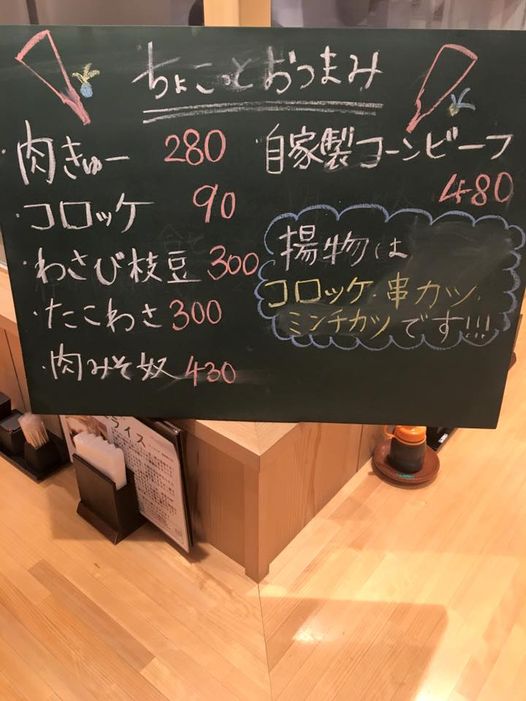 ちょこっとおつまみ
・肉きゅー 280
・コロッケ 90
・わさび枝豆 300
・たこわさ 300
・肉みそ奴 430
自家製コーンビーフ
480
揚物は
コロッケ・串カツ、
ミンチカツです!!!
ライス